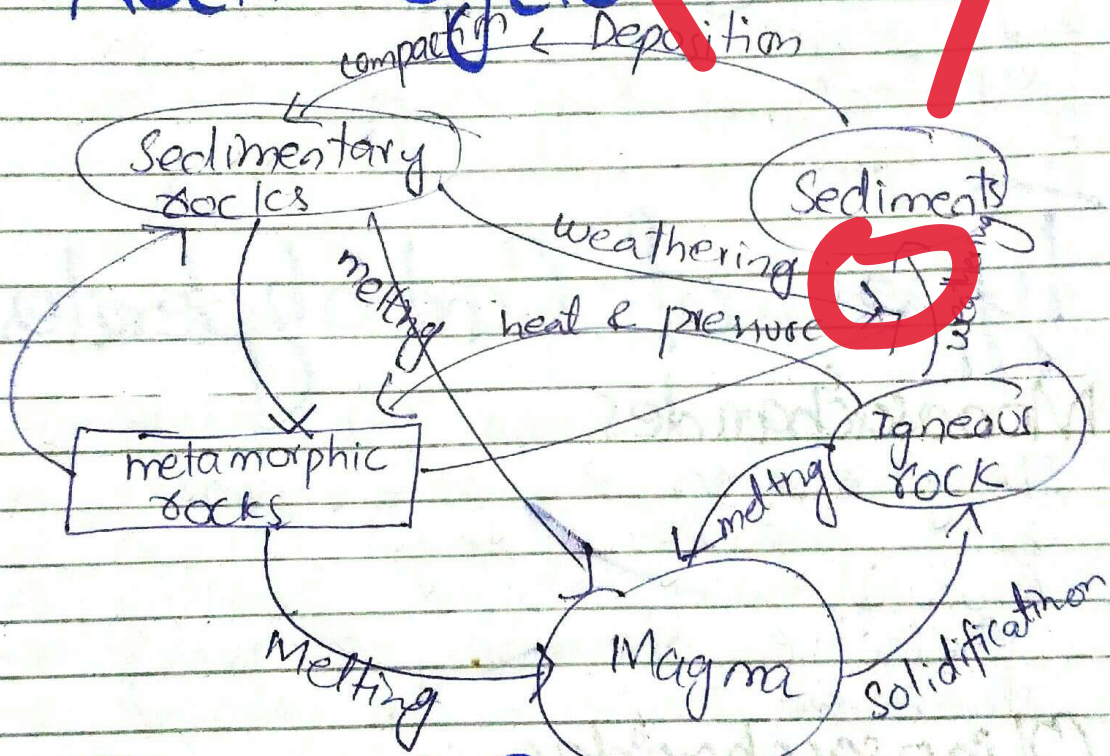 compaction
Deposition
Sedimentary
rocks
Sediments
weathering
weathering
melting
heat & pressure
metamorphic
rocks
Igneous
rock
melting
Magma
Melting
Solidificatinon